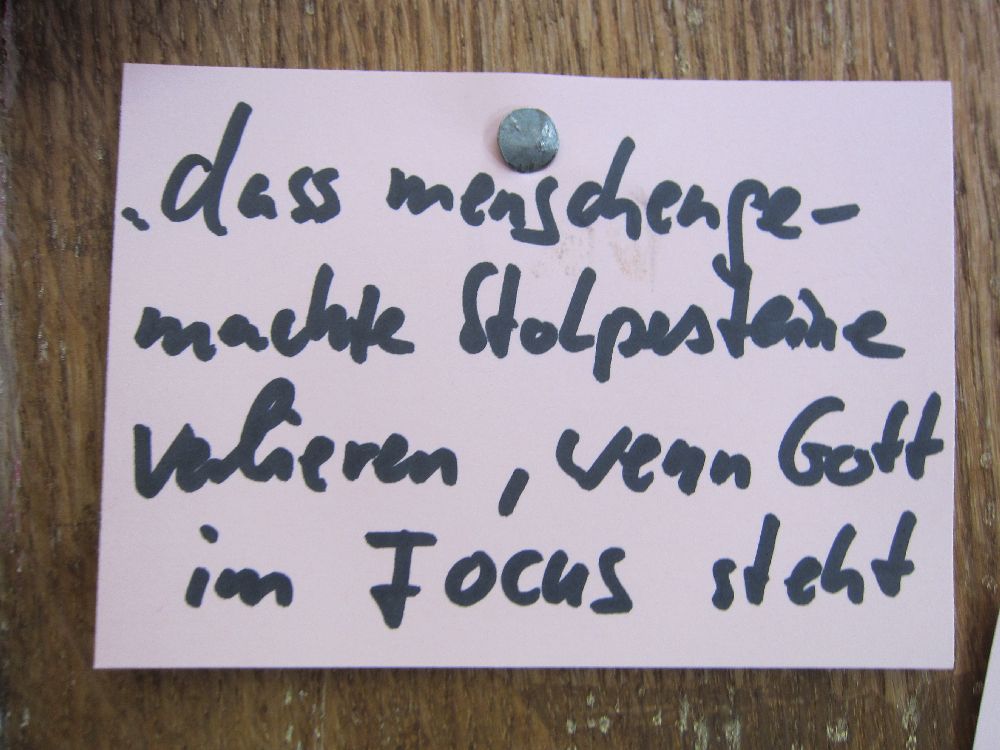 . dass menschenge-
machte Stolpersteine
verlieren, wenn Gott
im Focus steht